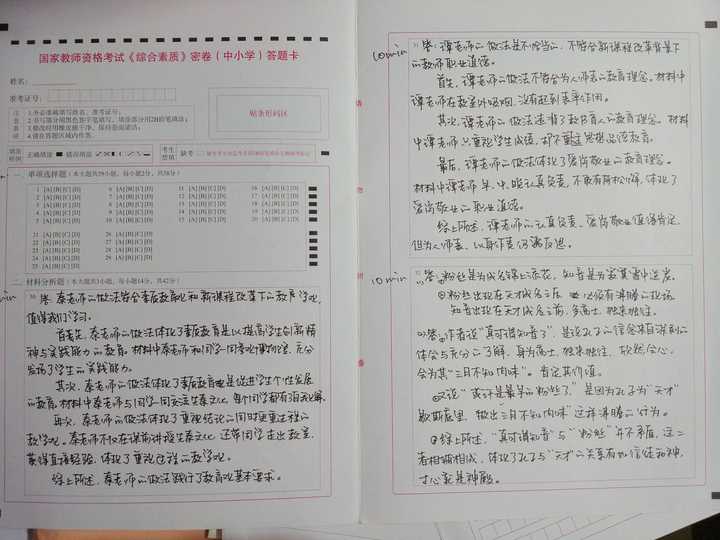 国家教师资格考试《综合素质》密卷（中小学）答题卡
姓名：
准考证号：
贴条形码区
填涂样例 正确填涂 错误填涂
考生禁填 缺考
一、单项选择题（本大题共29小题，每小题2分，共58分）
1 [A][B][C][D] 6 [A][B][C][D] 11 [A][B][C][D] 16 [A][B][C][D]
2 [A][B][C][D] 7 [A][B][C][D] 12 [A][B][C][D] 17 [A][B][C][D]
3 [A][B][C][D] 8 [A][B][C][D] 13 [A][B][C][D] 18 [A][B][C][D]
4 [A][B][C][D] 9 [A][B][C][D] 14 [A][B][C][D] 19 [A][B][C][D]
5 [A][B][C][D] 10 [A][B][C][D] 15 [A][B][C][D] 20 [A][B][C][D]
21 [A][B][C][D] 26 [A][B][C][D]
22 [A][B][C][D] 27 [A][B][C][D]
23 [A][B][C][D] 28 [A][B][C][D]
24 [A][B][C][D] 29 [A][B][C][D]
25 [A][B][C][D]
二、材料分析题（本大题共3小题，每小题14分，共42分）
30 答：秦老师的做法符合素质教育观和新课程改革下的教学观，
值得我们学习。
首先，秦老师的做法体现了素质教育是以提高学生创新精
神与实践能力的教育。材料中秦老师和同学一同参观博物馆，充分
发扬了学生的实践能力。
其次，秦老师的做法体现了素质教育是促进学生个性发展
的教育。材料中秦老师与同学一同交流
再次，秦老师的做法体现了重视结论的同时更重过程的
教学观。秦老师不仅在课前讲授 还带同学走出教室，
获得直接经验，体现了重视过程的教学观。
综上所述，秦老师的做法践行了教育观基本要求。
10min
31 答：谭老师的做法是不恰当的，不符合新课程改革背景下
的教师职业道德。
首先，谭老师的做法不符合为人师表的教育理念。材料中
谭老师在教室外吸烟，没有起到表率作用。
其次，谭老师的做法违背了教书育人的教育理念。材料
中谭老师只重视学生成绩，却不重思想品德教育。
最后，谭老师的做法体现了爱岗敬业的教育理念。
材料中谭老师早、中、晚认真负责，不敢有所松懈，体现了
爱岗敬业的职业道德。
综上所述，谭老师的认真负责、爱岗敬业值得肯定，
但为人师表、以身作责仍需反思。
10min
32 答：粉丝是为成名锦上添花，知音是为寂寞雪中送炭。
粉丝出现在天才成名之后 必须有沸腾的现场
知音出现在天才成名之前，多属士，独来独往。
答：作者说“真可谓知音了”，是说孔子的信念来自深刻的
体会与充分的了解，身为属士，独来独往，欣然会心，
会为其“三月不知肉味”。肯定其价值。
又说“或许是最早的粉丝了，”是因为孔子为“天才”
歇斯底里，做出“三月不知肉味”这样沸腾的行为。
综上所述，“真可谓知音”与“粉丝”并不矛盾，这二
者相辅相成，体现了孔子与“天才”的关系有如信徒和神，